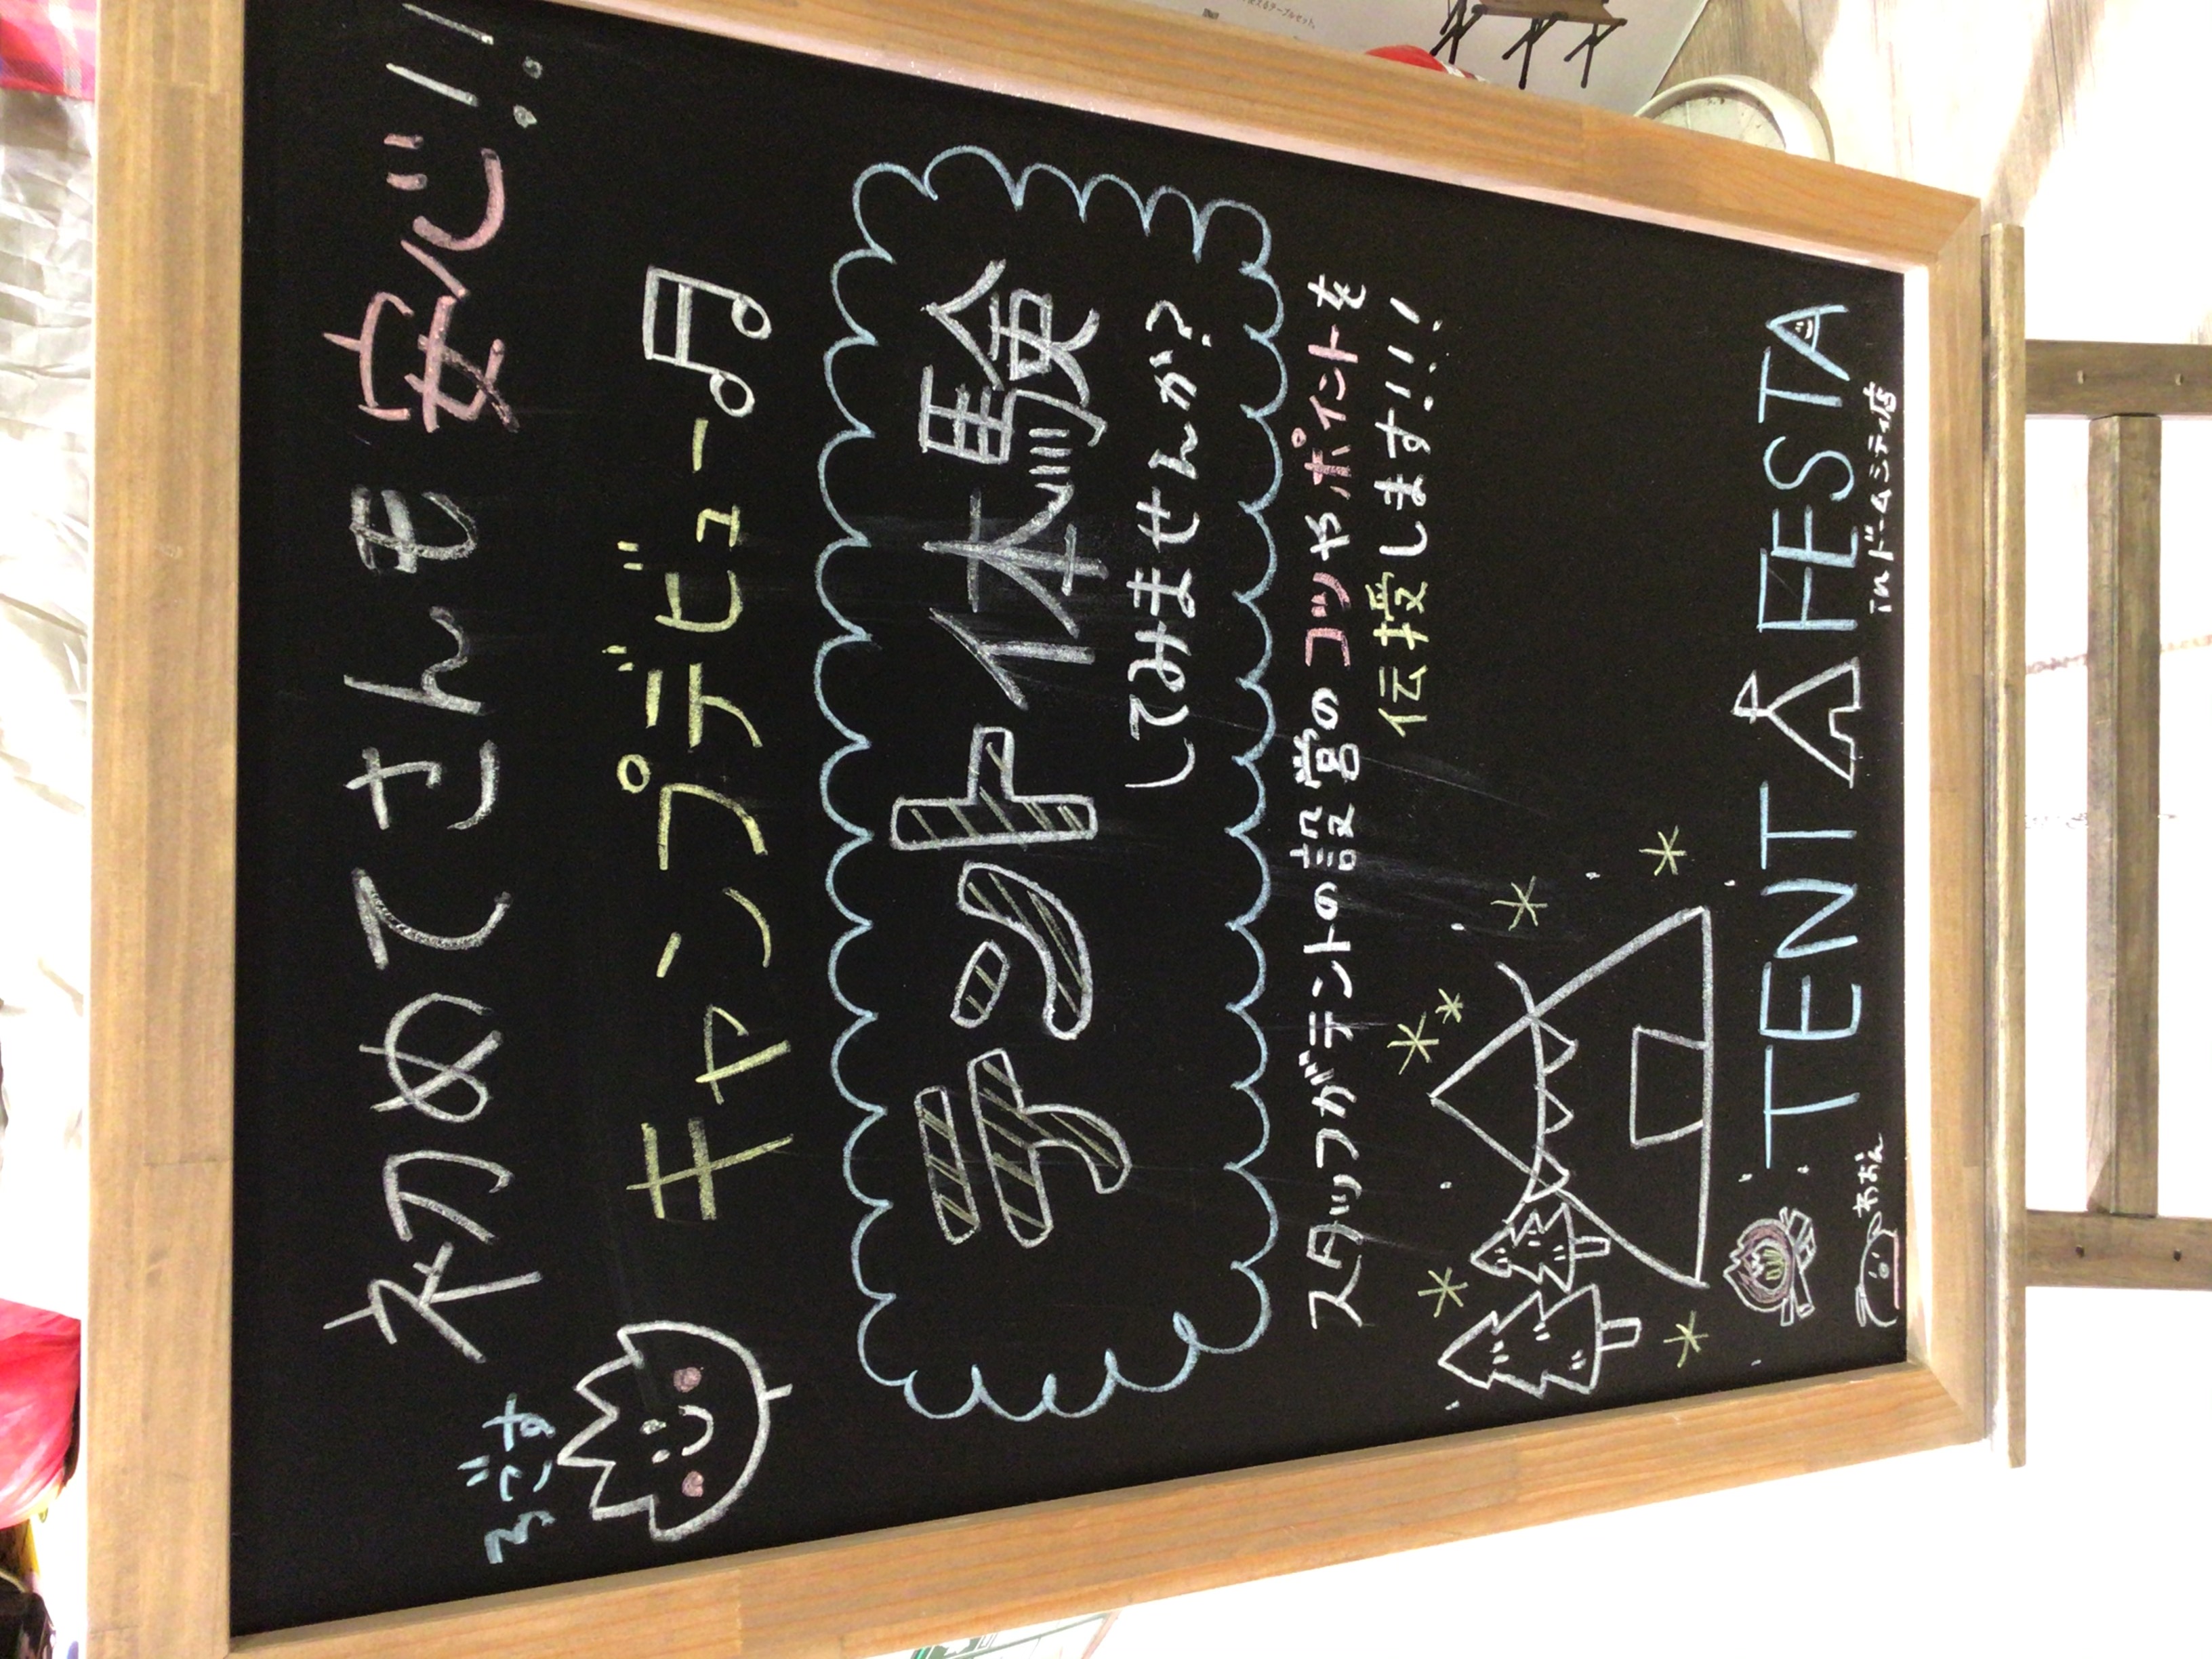 初めてさんも安心!!
ふごす
キャンプデビュー♫
テント体験
してみませんか?
スタッフがテントの設営のコツやポイントを
伝授します!!!
TENT FESTA
inドームシティ店
あおん